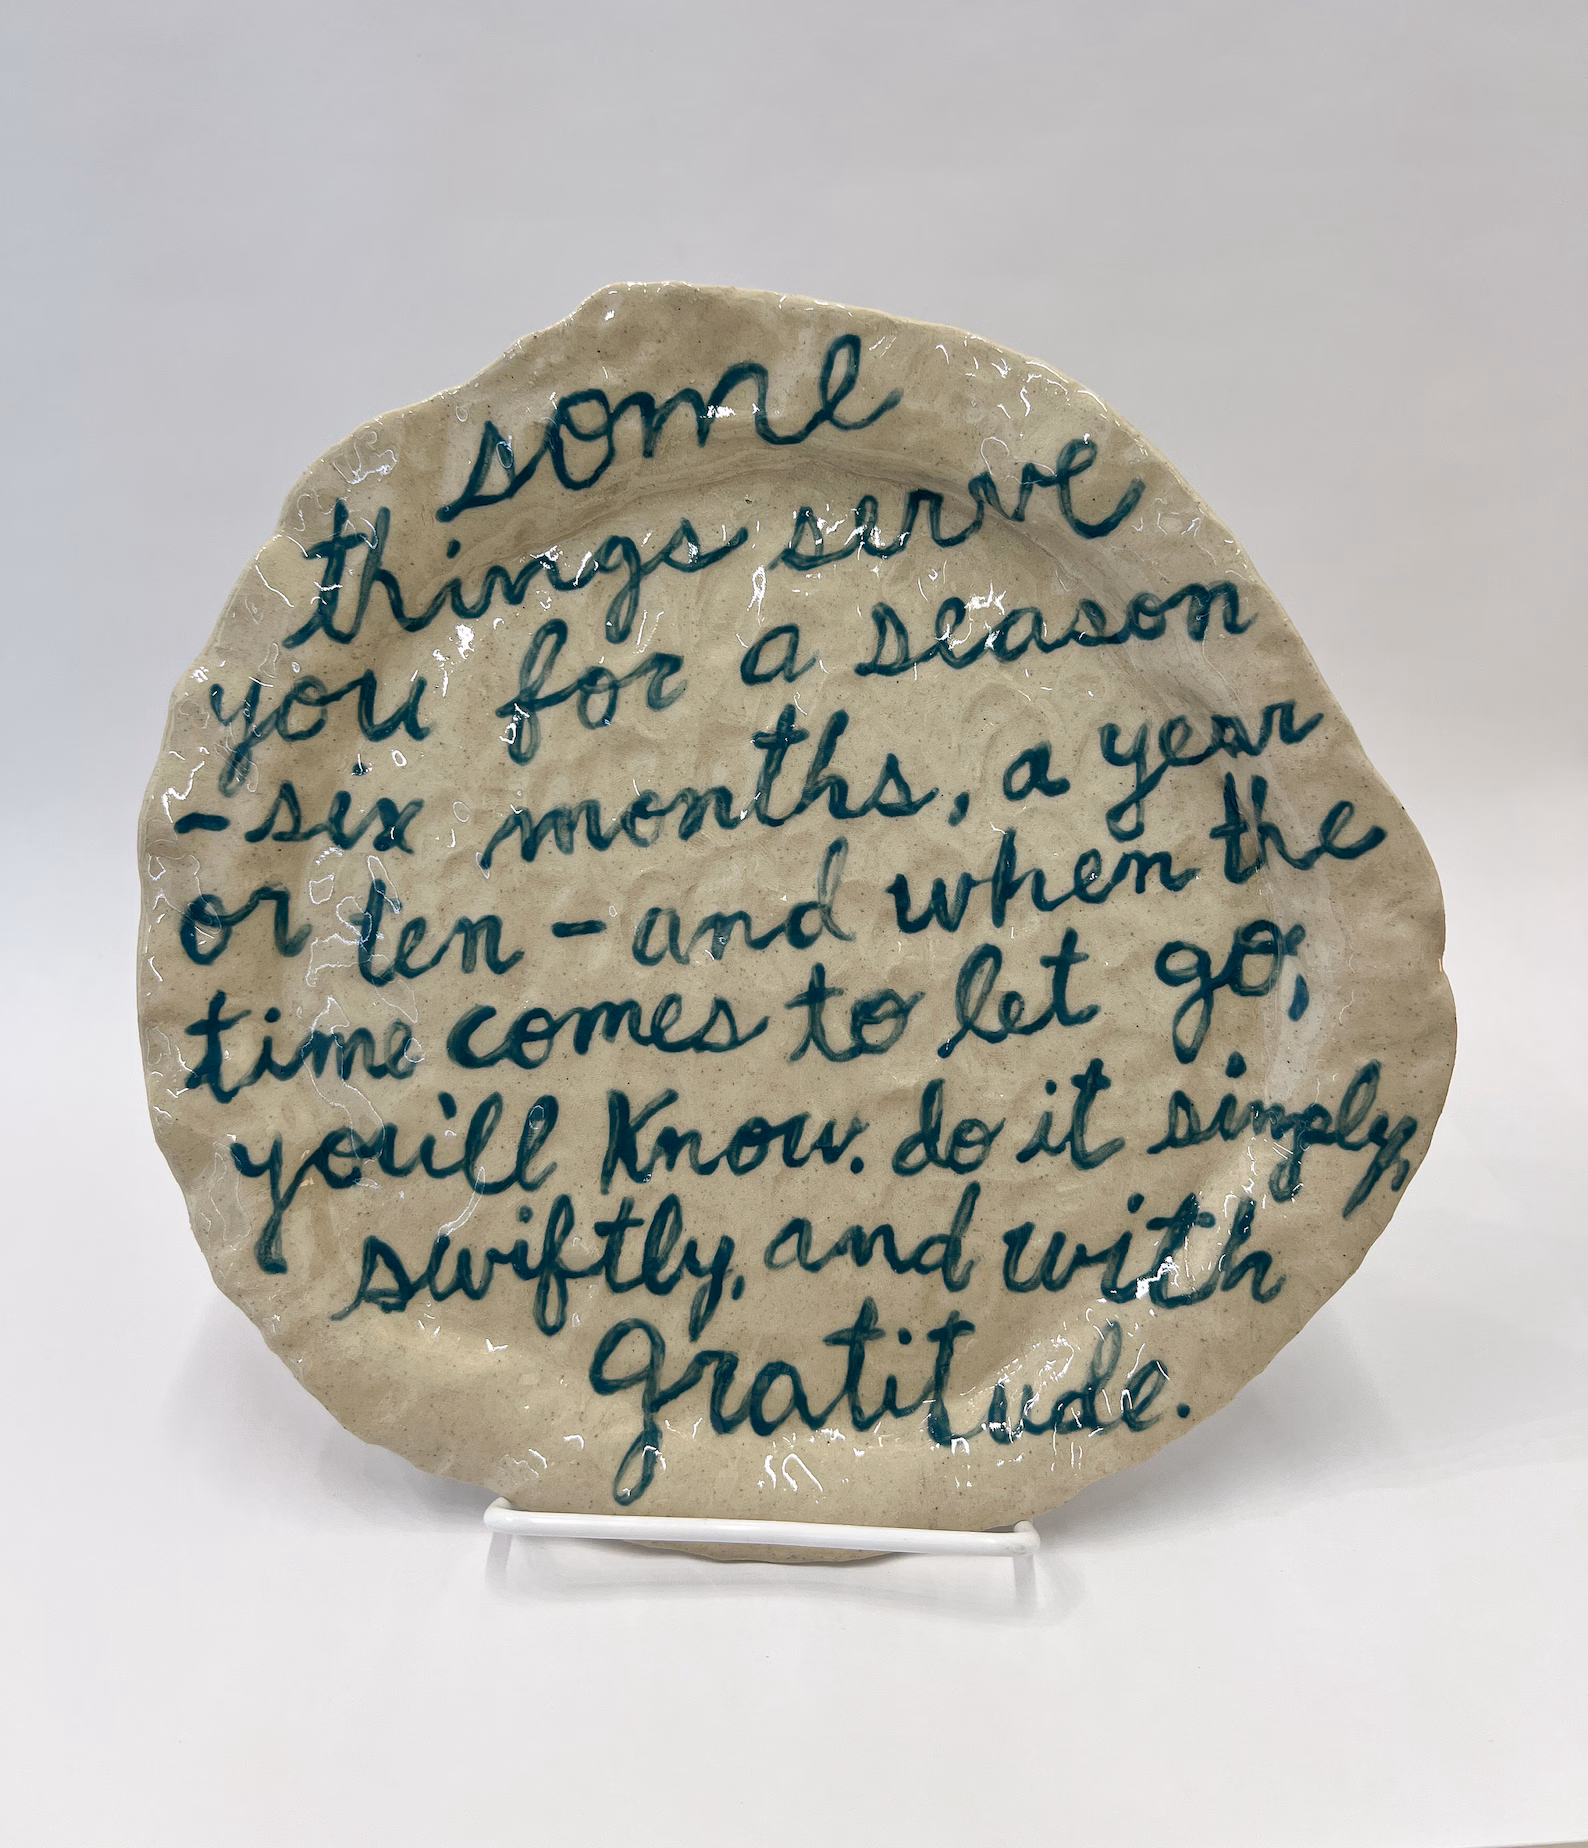 some
things serve
you for a season
- six months, a year
or ten - and when the
time comes to let go,
you'll know. do it simply,
swiftly, and with
gratitude.